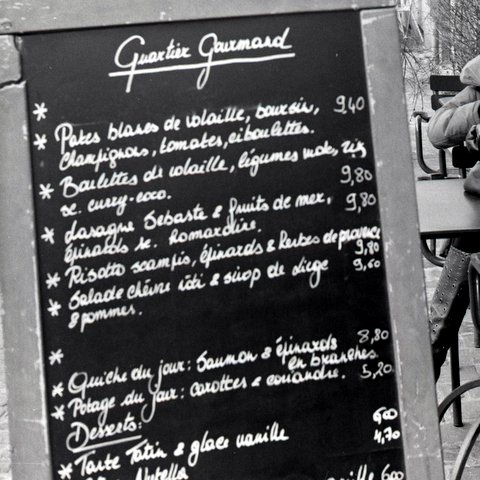 Quartier Gourmand
*
* Pates blanes de volaille, boursin, 9,40
champignons, tomates, ciboulettes.
* Boulettes de volaille, légumes wok, riz
sc. curry-coco. 9,80
* Lasagne Sebaste & fruits de mer, 9,80
épinards sc. homardine.
* Risotto scampis, épinards & herbes de provence 9,80
* Salade chèvre rôti & sirop de liège 9,60
& pommes.
*
* Quiche du jour: Saumon & épinards 8,80
en branches
* Potage du jour: carottes & coriandre. 5,20
Desserts:
* Tarte Tatin & glace vanille 6,00
4,70
Nutella
vanille 6,00